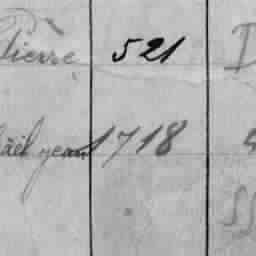 Pierre 521
aël jean 1718